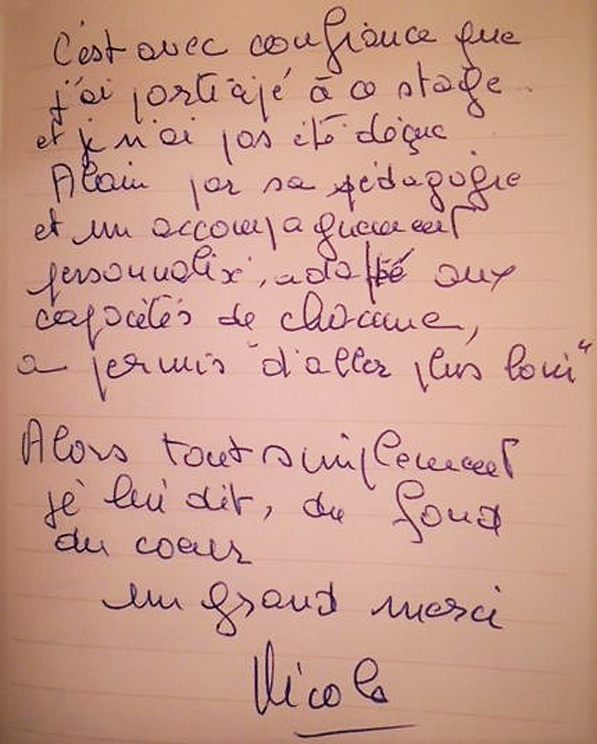 C'est avec confiance que
j'ai partiajé à ce stage
et je n'ai pas été déçue
Alain par sa pédagogie
et un accompagnement
personnalisé, adapté aux
capacités de chacune,
a permis "d'aller plus loin"
Alors tout simplement
je lui dit, du fond
du coeur
un grand merci
Nicole